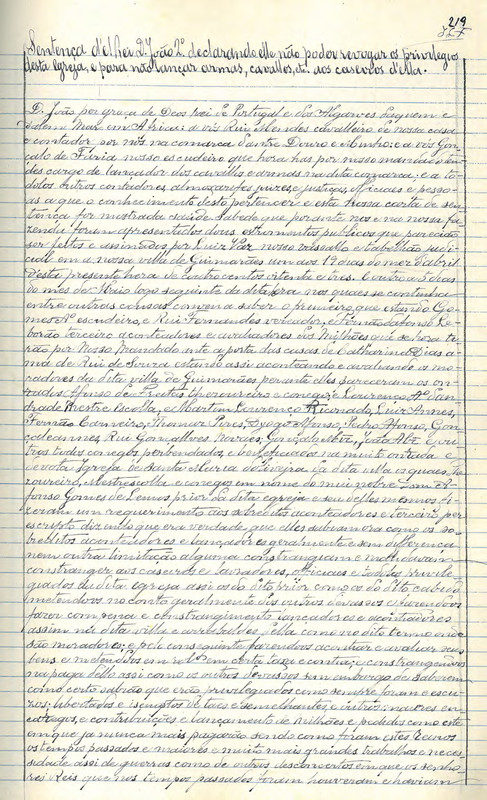 219
Sentença d'el Rei D. João 2º declarando elle não poder revogar os privilegios
desta Egreja, e para não lançar armas, cavallos, etc. aos caseiros d'ella.
D. João por graça de Deos rei de Portugal e dos Algarves daquem e
dalem Mar em Africa: a vós Rui Mendes cavalleiro de nossa casa
e contador por nós na comarca d'antre Douro e Minho: e a vós Gon
çalo de Faria nosso escudeiro que hora has por nosso mandado
cargo de lançador dos cavallos e armas na dita comarca: e a to
dolos outros contadores, almoxarifes, juizes, e justiças, officiaes e pesso
as a que o conhecimento desto pertencer e esta nossa carta de sen
tença for mostrada saúde. Sabede que perante nós e na nossa fa
zenda foram apresentados dous estromentos publicos que pareciam
ser feitos e assinados por Luiz Vaz nosso vassallo e tabellião
em a nossa villa de Guimarães um aos 19 dias do mez d'abril
desta presente hera de quatro centos oitenta e tres. E outro a 5 dias
do mez de Maio logo seguinte da dita hera nos quaes se continha
entre outras causas convem a saber o primeiro que estando Go
mes escudeiro, e Rui Fernandes vereador, e Fernão d'Afonso Le
borão terceiro acontiadores e avaliadores dos Milhões que se hora ti
rão por Nosso Mandado ante a porta das casas de Catharina Dias a
ma de Rui de Souza estando assi acontiando e avaliando os mo
radores da dita villa de Guimarães perante elles pareceram os on
rados Afonso de Freitas thezoureiro e conego: e Lourenço
drade Mestre Escolla, e Martim Lourenço, Luiz Annes,
Fernão Carneiro, Thomaz Pires, Diogo Afonso, Pedro Afonso, Gon
Rui Gonçalves, Gonçalo João Alz e ou
tros todos conegos perbendados, e beneficiados na muito onrada e
devota Egreja de Santa Maria da Oliveira da dita villa os quaes, the
zoureiro, Mestrescolla, e conegos em nome do mui nobre Dom A
fonso Gomes de Lemos prior da dita egreja e seu delles mesmos, fi
zeram um requerimento aos sobreditos acontiadores e terceiro, per
escrito dizendo que era verdade que elles como os so
breditos acontiadores e lançadores geralmente e sem differença
nem outra limitação alguma constrangeram e mandavam
constranger aos caseiros e lavradores, officiaes e todolos privile
giados da dita egreja assi os do dito prior como os do dito cabido
metendoos no conto geralmente dos outros devassos e fazendoos
fazer com pena e constrangimento lançadores e acontiadores
assim na dita villa e arrebaldes della como no dito termo onde
são moradores; e pelo conseguinte fazendoos acontiar e avaliar seus
bens e metendoos em rol em certa taxa e contia; e constrangemos
na paga dello assi como os outros devassos sem embargo de saberem
como certo sabião que erão privilegiados como sempre foram e escu
zos; libertados e isemptos de taes e semelhantes, e outros maiores en
carregos, e contribuições e lançamento de milhões e pedidos como este
em que ja nunca mais pagarão sendo como foram estes reinos
os tempos passados e maiores e muito mais grandes trabalhos e neces
sidade assi de guerras como de outros desconcertos em que os senho
res Reis que nos tempos passados foram houveram e haviam